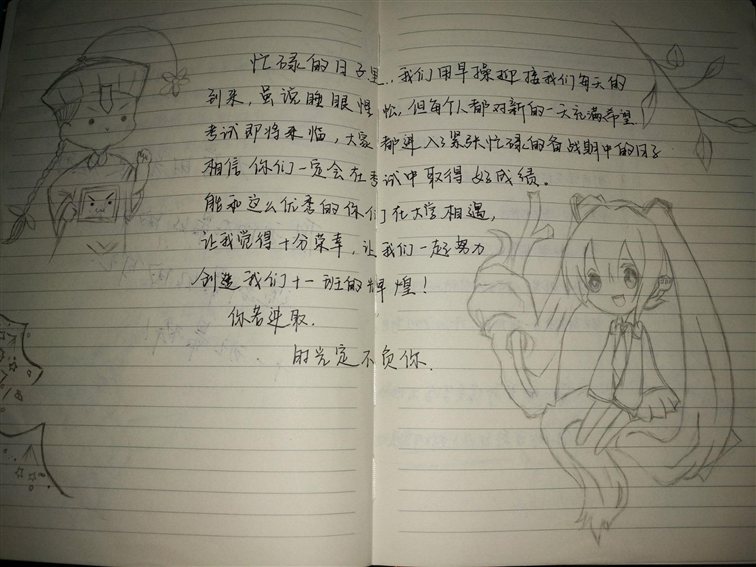 忙碌的日子里,我们用早操迎接我们每天的
到来,虽说睡眼惺忪,但每个人都对新的一天充满希望
考试即将来临,大家都进入了紧张忙碌的备战期中的日子
相信你们一定会在考试中取得好成绩。
能和这么优秀的你们在大学相遇,
让我觉得十分荣幸,让我们一起努力
创造我们十一班的辉煌!
你若进取.
时光定不负你.